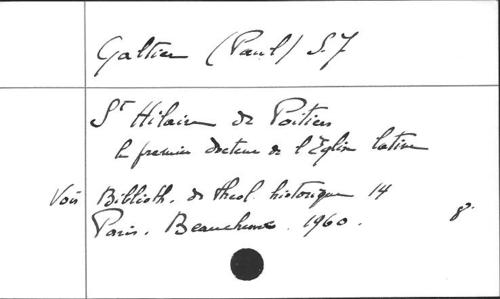 Galtier (Paul) S.J
St Hilaire de Poitiers
le premier docteur de l'Eglise latine
Voir Biblioth. de theol. historique 14
Paris. Beauchesne. 1960. 8°